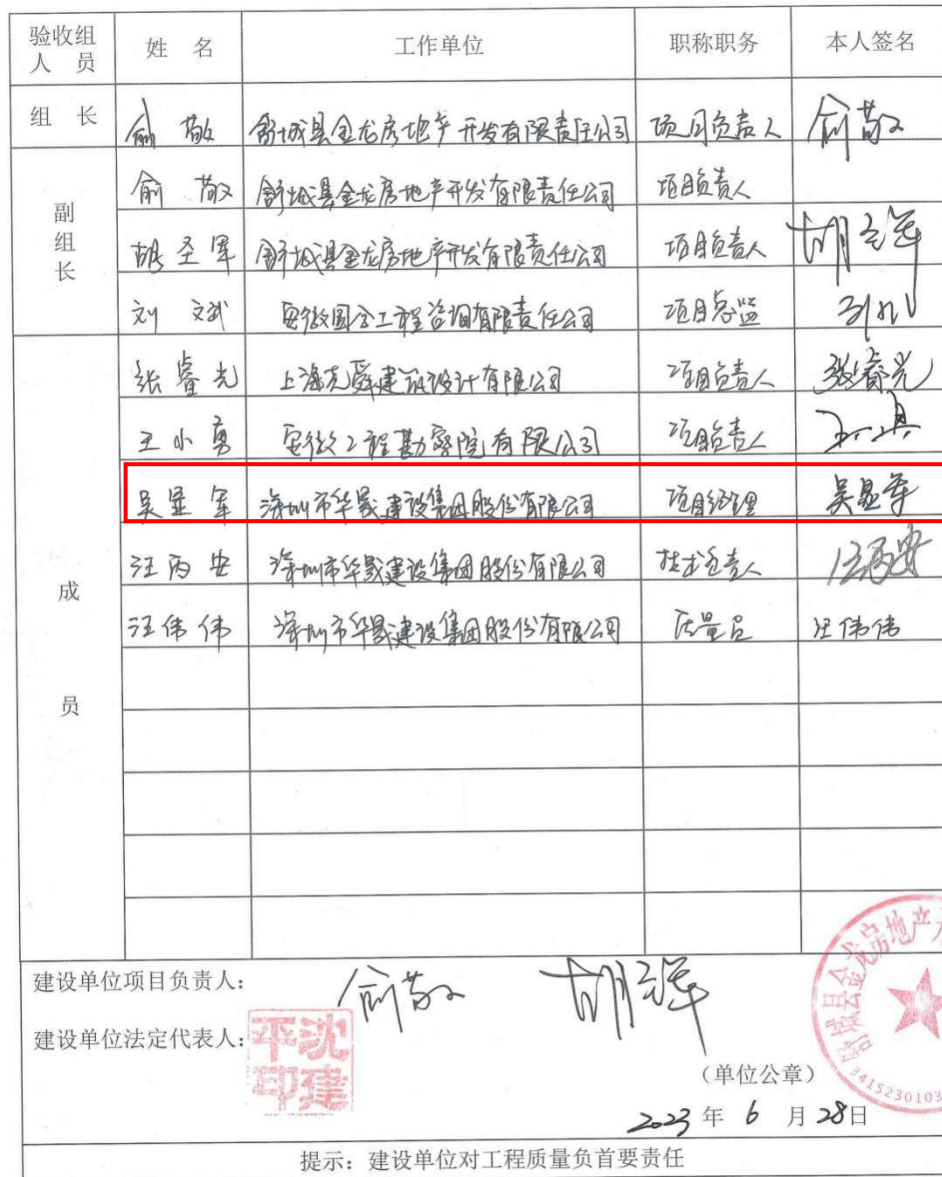 验收组人员 姓 名 工作单位 职称职务 本人签名
组 长 俞敬 舒城县金龙房地产开发有限责任公司 项目负责人 俞敬
副组长 俞敬 舒城县金龙房地产开发有限责任公司 项目负责人
胡圣军 舒城县金龙房地产开发有限责任公司 项目负责人 胡圣军
刘文斌 安徽国合工程咨询有限责任公司 项目总监
成员 张睿光 上海尧舜建筑设计有限公司 项目负责人 张睿光
王小勇 安徽工程勘察院有限公司 项目负责人
吴显军 深圳市华晟建设集团股份有限公司 项目经理 吴显军
汪丙安 深圳市华晟建设集团股份有限公司 技术负责人 汪丙安
汪伟伟 深圳市华晟建设集团股份有限公司 质量员 汪伟伟
建设单位项目负责人: 俞敬 胡圣军
建设单位法定代表人: 沈建平印
舒城县金龙房地产
3415230103
(单位公章)
2023 年 6 月 28日
提示: 建设单位对工程质量负首要责任